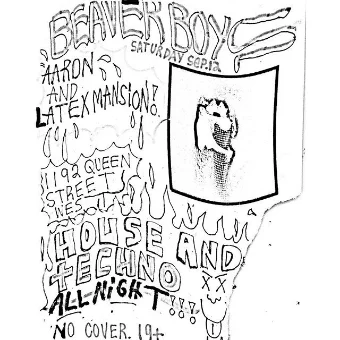 BEAVER BOYS
SATURDAY SEP.12
AARON
AND
LATEX MANSION!
1192 QUEEN
STREET
WEST
HOUSE AND
TECHNO
ALL NIGHT!!!
NO COVER. 19+